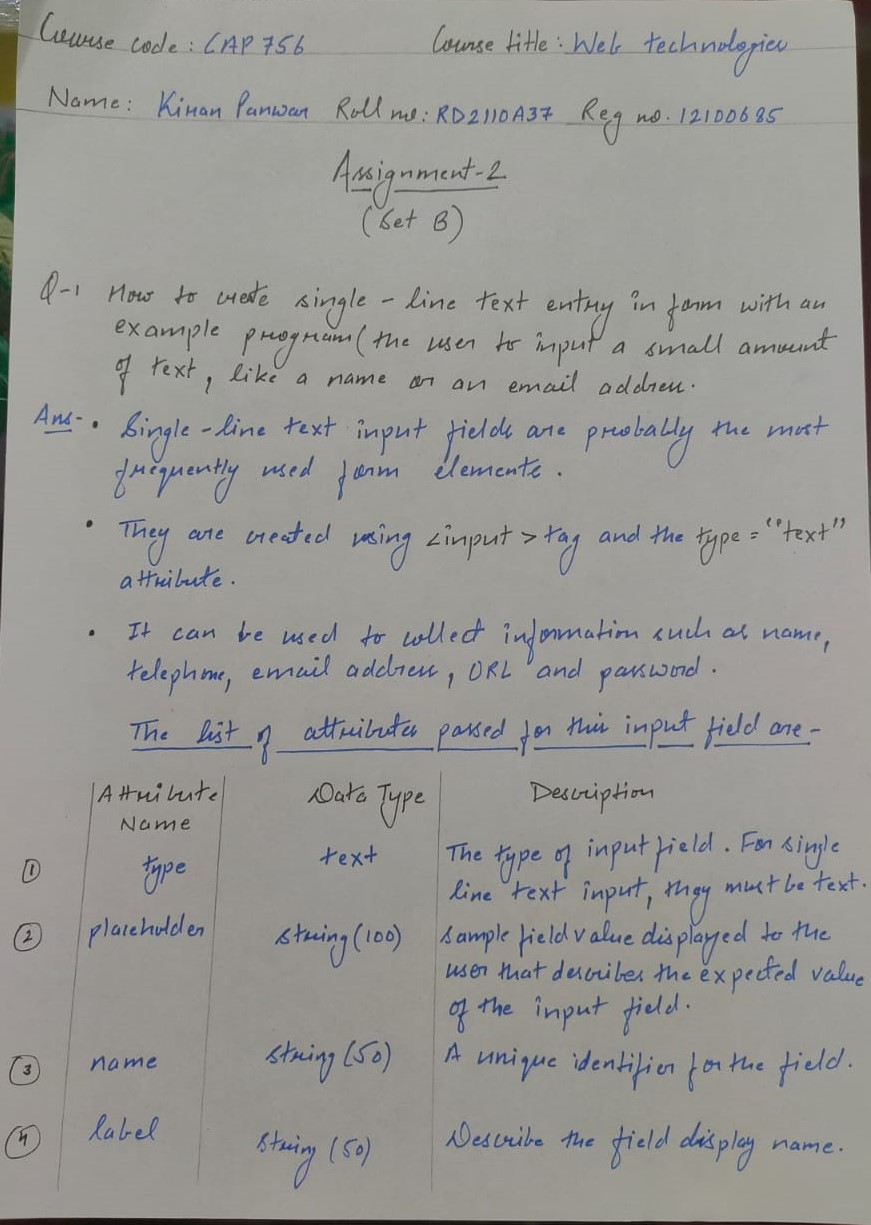 Course code : CAP 756 Course title : Web technologies
Name: Kiran Panwar Roll no: RD2110A37 Reg no. 12100685
Assignment-2
(Set B)
Q-1 How to create single - line text entry in form with an
example program ( the user to input a small amount
of text, like a name or an email address.
Ans- • Single - line text input fields are probably the most
frequently used form elements .
• They are created using <input> tag and the type = "text"
attribute .
• It can be used to collect information such as name,
telephone, email address, URL and password .
The list of attributes passed for this input field are -
Attribute Data Type Description
Name
① type text The type of input field . For single
line text input, they must be text.
② placeholder String (100) Sample field value displayed to the
user that describes the expected value
of the input field .
③ name String (50) A unique identifier for the field .
④ label String (50) Describe the field display name .